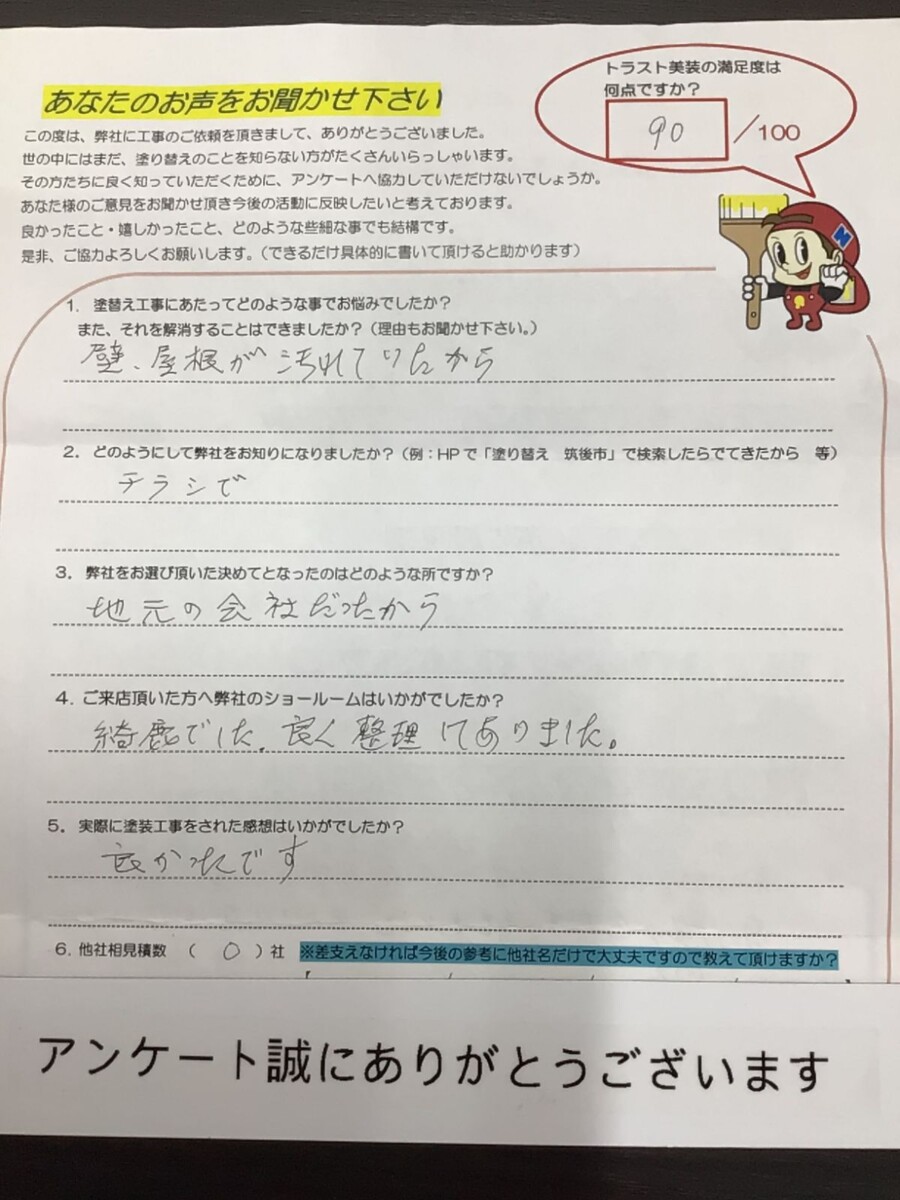 あなたのお声をお聞かせ下さい
トラスト美装の満足度は
何点ですか?
90 /100
この度は、弊社に工事のご依頼を頂きまして、ありがとうございました。
世の中にはまだ、塗り替えのことを知らない方がたくさんいらっしゃいます。
その方たちに良く知っていただくために、アンケートへ協力していただけないでしょうか。
あなた様のご意見をお聞かせ頂き今後の活動に反映したいと考えております。
良かったこと・嬉しかったこと、どのような些細な事でも結構です。
是非、ご協力よろしくお願いします。(できるだけ具体的に書いて頂けると助かります)
N
1. 塗替え工事にあたってどのような事でお悩みでしたか?
また、それを解消することはできましたか?(理由もお聞かせ下さい。)
壁、屋根が汚れていたから
2. どのようにして弊社をお知りになりましたか?(例:HPで「塗り替え 筑後市」で検索したらでてきたから 等)
チラシで
3. 弊社をお選び頂いた決めてとなったのはどのような所ですか?
地元の会社だったから
4. ご来店頂いた方へ弊社のショールームはいかがでしたか?
綺麗でした。良く整理してありました。
5. 実際に塗装工事をされた感想はいかがでしたか?
良かったです
6. 他社相見積数 ( 0 )社 ※差支えなければ今後の参考に他社名だけで大丈夫ですので教えて頂けますか?
アンケート誠にありがとうございます